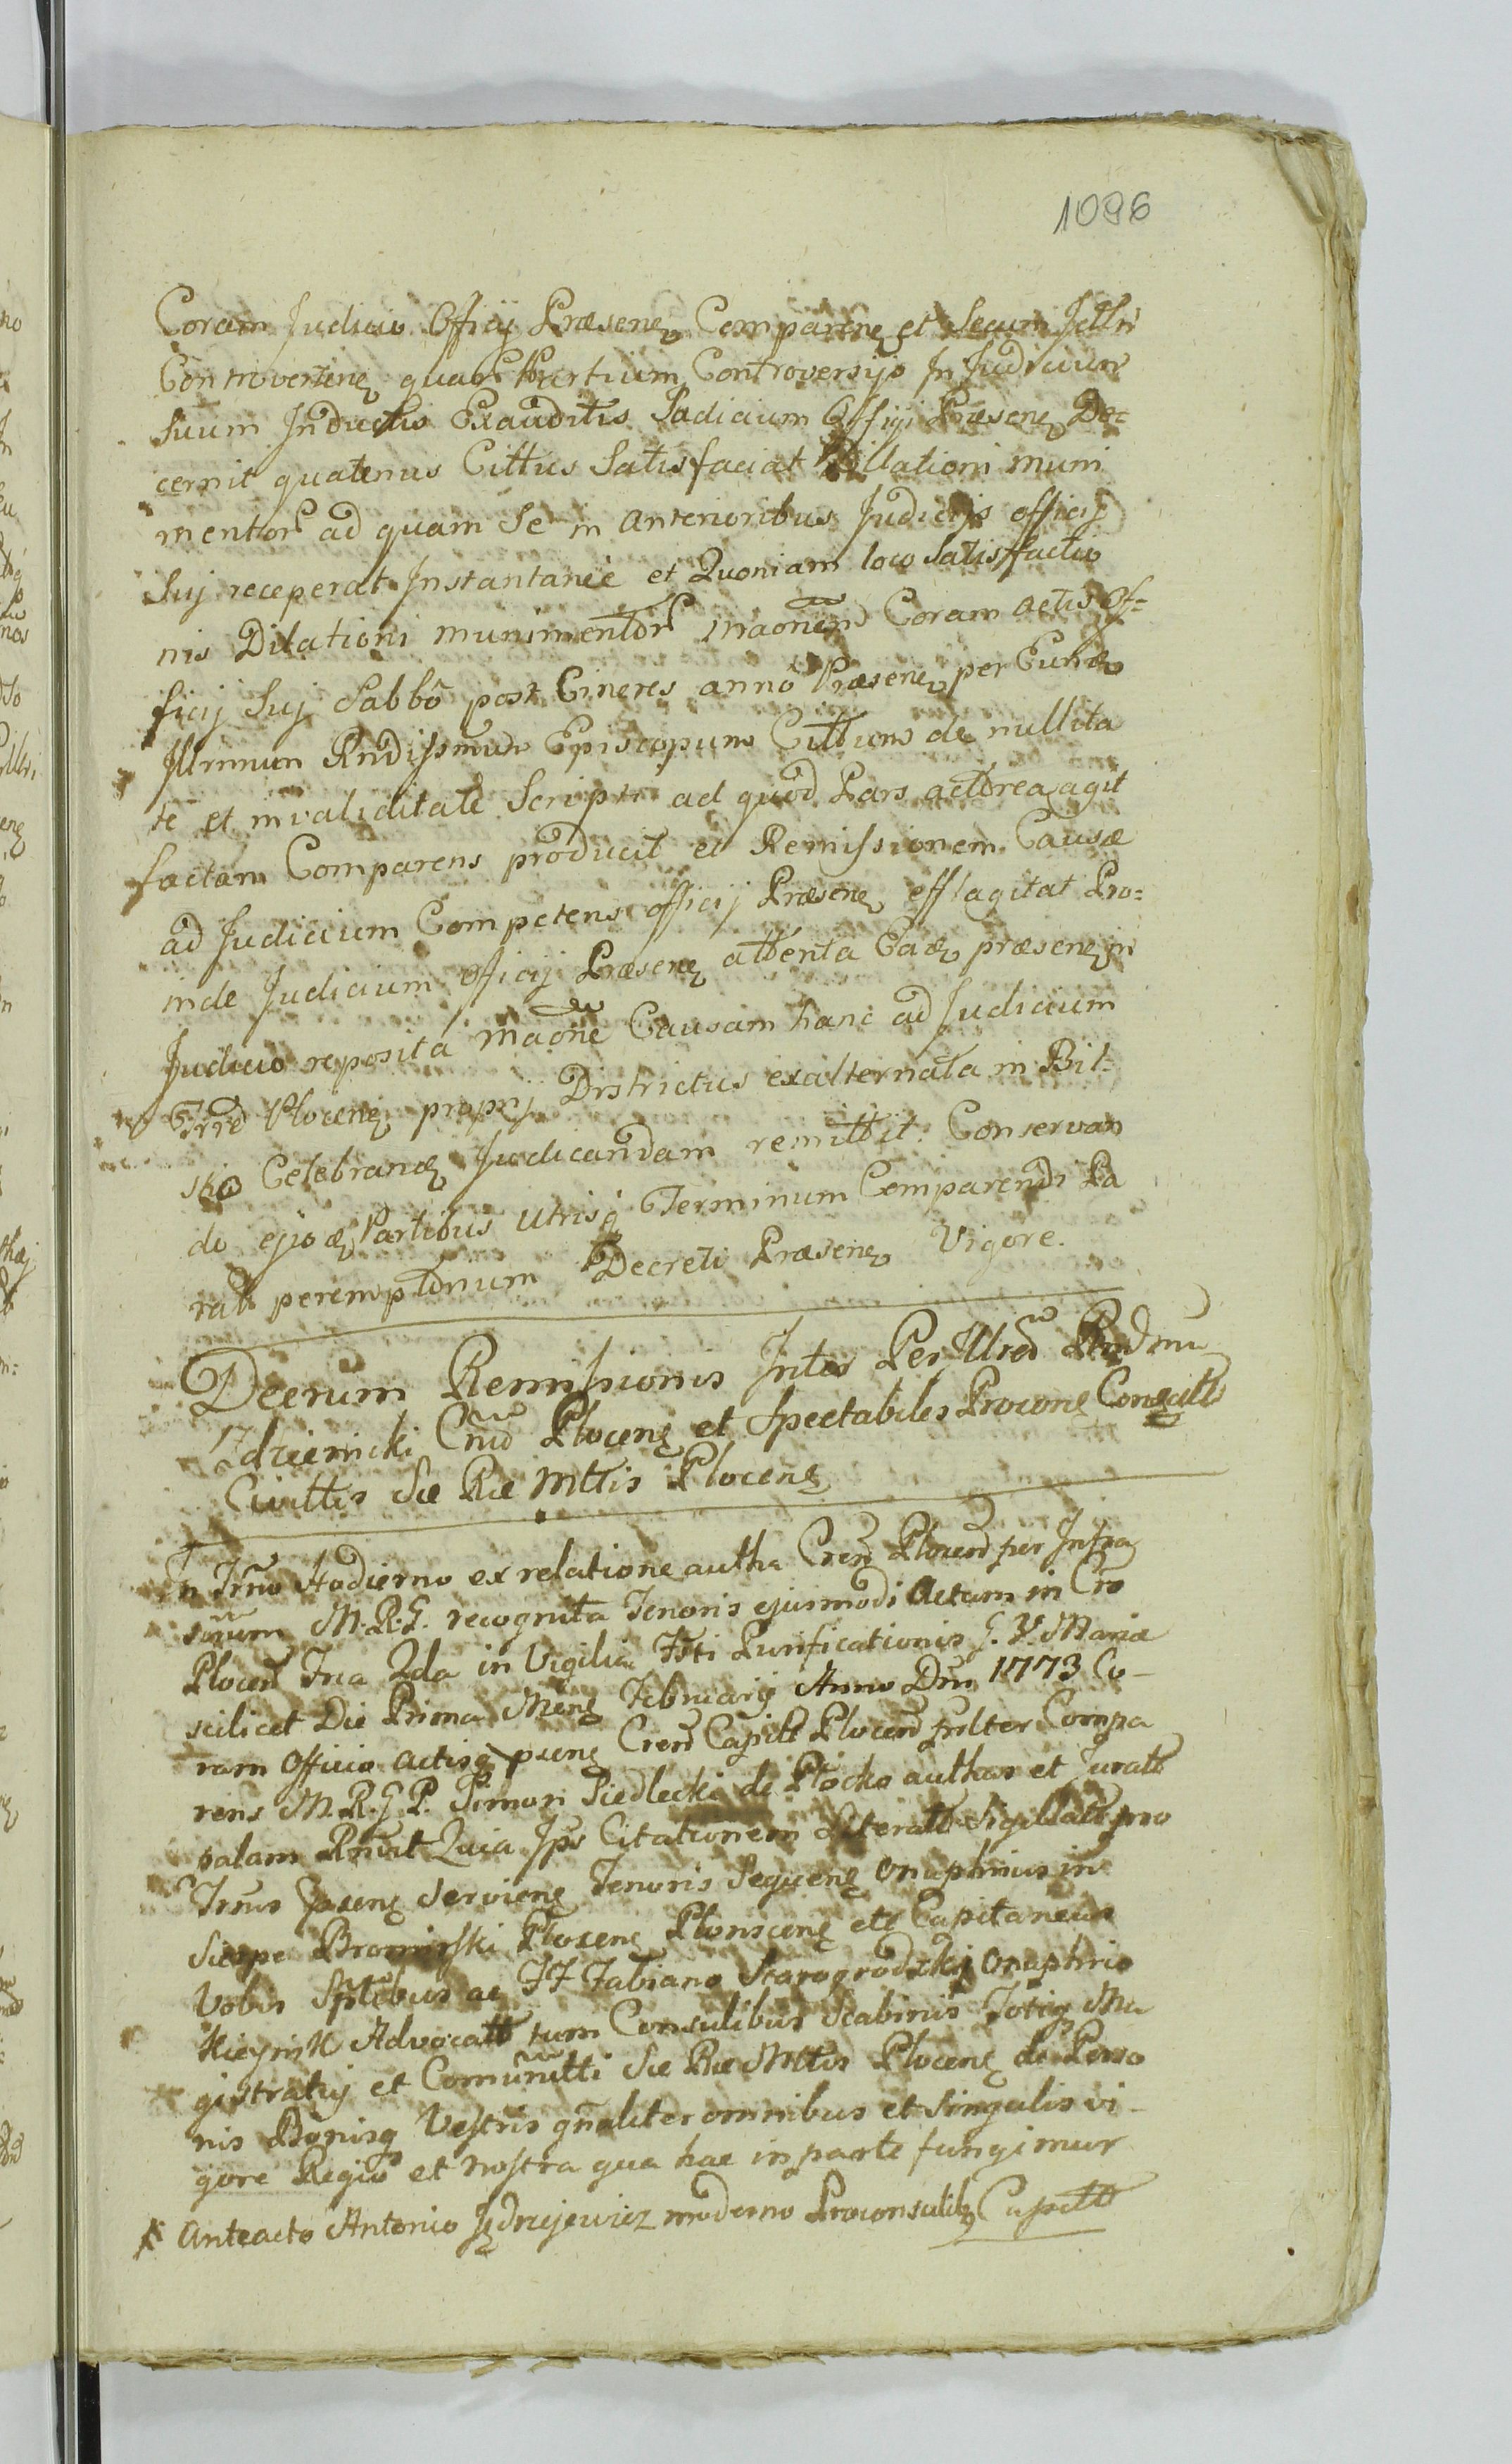 1096
Coram Judicio Officij Præsenꝭ Comparenꝭ et Secum Jettri
Controvertenꝭ quar Partium Controversijs In Judicium
suum Inductis Exauditis Judicium Officij Præsenꝭ De=
cernit quatenus Cittus Satisfaciat Dillationi muni
mentor ad quam Se in anterioribus Judicijs officij
Suj receperat Instantanee et Quoniam loco Satisfactio
nis Dilationi munimentor Coram actis Of=
ficij Suj Sabbo post Cineres anno Præsenꝭ per Eundꝭ
Illrmum Rndissmum Episcopum Cittum de nullita
te et invaliditate Scripti ad quod Pars actorea agit
factam Comparens producit et Remissionem Causæ
ad Judicium Competens officij Præsenꝭ efflagitat Pro=
inde Judicium officij Præsenꝭ attenta Eadꝭ præsenꝭ in
Judicio reposita maone Causam hanc ad Judicium
Trre Plocenꝭ proprij Districtus exalternata in Biel=
sko Celebrandꝭ Judicandam remittit Conservan
do Partibus utrisq Terminum Comparendi Pa
rat peremptorium Decreti Præsenꝭ Vigore.
Decrum Remissionis Inter Per Illrem Rndmu
Jdzienicki Cnd Plocenꝭ et Spectabiles Proconꝭ Consult
Civittis Sæ Ræ Mttis Plocenꝭ
In Trno Hodierno ex relatione autha Cren Plocen per Infra
srum M.R.G. recognita Tenoris ejusmodi Actum in Cro
Plocen Fria 2da in Vigilia Fsti Purificationis G. V. Mariæ
scilicet Die Prima Menꝭ Februarij Anno Dni 1773 Co-
ram Officio actisq psenꝭ Cren Capitt Plocen psolter Compa
rens M.R.G.P. Simon Siedlecki de Płocko authan et Juratt
palam Rnvit Quia Ips Citationem Literatt Sigillatt pro
Trno psenꝭ servienꝭ Tenoris Sequenꝭ Onuphrius in
Sierpc Bromirski Plocenꝭ Plonscenꝭ etc Capitaneus
Vobis Spltbus ac FF Fabiano Starogrodzkj Onuphrio
Advocatt tum Consulibus Scabinis Totiq Ma
gistratuj et Comunitti Sæ Ræ Mttis Plocenꝭ de Perso
nis Bonisq Vestris gnaliter omnibus et Singulis vi-
gore Regio et nostra qua hac in parte fungimur
* Anteacto Antonio Jędrzejewicz moderno Proconsulibꝫ Capitt